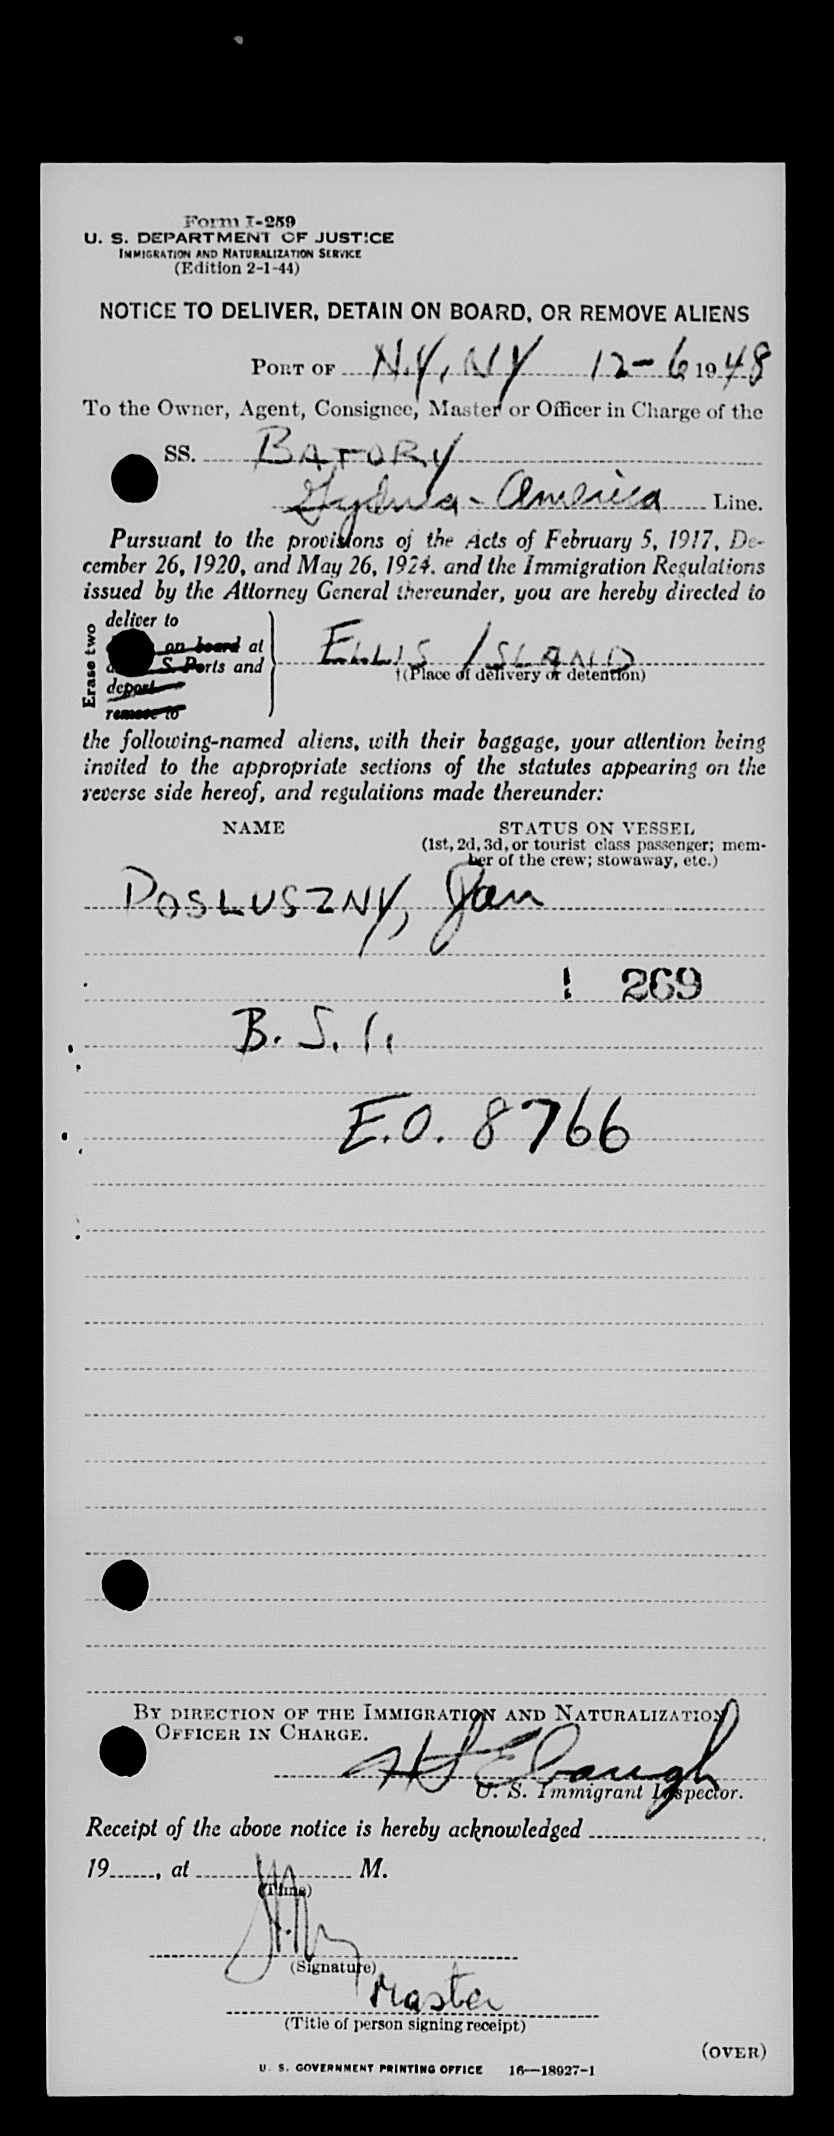 Form I-259
U. S. DEPARTMENT OF JUSTICE
IMMIGRATION AND NATURALIZATION SERVICE
(Edition 2-1-44)
NOTICE TO DELIVER, DETAIN ON BOARD, OR REMOVE ALIENS
PORT OF N.Y, NY 12-6 1948
To the Owner, Agent, Consignee, Master or Officer in Charge of the
SS. BATORY
Gydnia-America Line.
Pursuant to the provisions of the Acts of February 5, 1917, De-
cember 26, 1920, and May 26, 1924, and the Immigration Regulations
issued by the Attorney General thereunder, you are hereby directed to
Erase two
deliver to
on board at
S. Ports and
deport
remove to
ELLIS ISLAND
†(Place of delivery or detention)
the following-named aliens, with their baggage, your attention being
invited to the appropriate sections of the statutes appearing on the
reverse side hereof, and regulations made thereunder:
NAME STATUS ON VESSEL
(1st, 2d, 3d, or tourist class passenger; mem-
ber of the crew; stowaway, etc.)
POSLUSZNY, Jan
269
B. S. I.
E.O. 8766
BY DIRECTION OF THE IMMIGRATION AND NATURALIZATION
OFFICER IN CHARGE.
U. S. Immigrant Inspector.
Receipt of the above notice is hereby acknowledged
19......, at M.
(Time)
(Signature)
Master
(Title of person signing receipt)
(OVER)
U. S. GOVERNMENT PRINTING OFFICE 16—18027-1